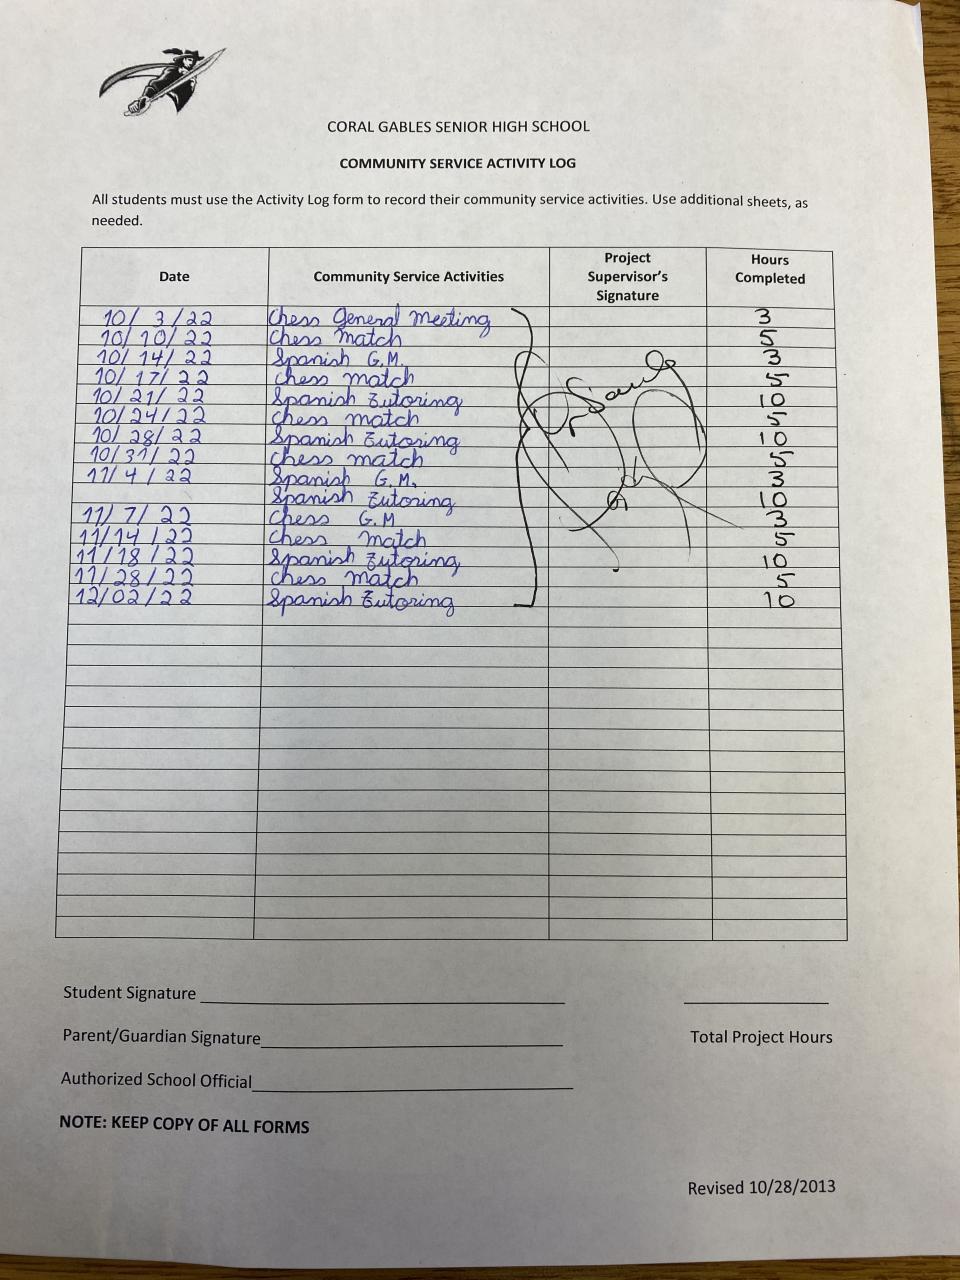 CORAL GABLES SENIOR HIGH SCHOOL
COMMUNITY SERVICE ACTIVITY LOG
All students must use the Activity Log form to record their community service activities. Use additional sheets, as
needed.
Date Community Service Activities Project Supervisor's Signature Hours Completed
10/ 3 /22 Chess General Meeting 3
10/ 10/ 22 Chess Match 5
10/ 14/ 22 Spanish G.M. 3
10/ 17/ 22 Chess Match 5
10/ 21/ 22 Spanish Tutoring 10
10/24/ 22 Chess Match 5
10/ 28/ 22 Spanish Tutoring 10
10/31/ 22 Chess Match 5
11/ 4 / 22 Spanish G.M. 3
Spanish Tutoring 10
11/ 7/ 22 Chess G.M 3
11/14 /22 Chess Match 5
11/18 /22 Spanish Tutoring 10
11/28/22 Chess Match 5
12/02/22 Spanish Tutoring 10
Student Signature
Parent/Guardian Signature Total Project Hours
Authorized School Official
NOTE: KEEP COPY OF ALL FORMS
Revised 10/28/2013